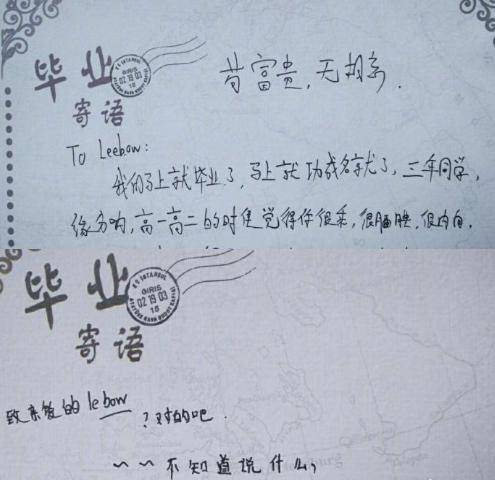 毕业
寄语
苟富贵,无相忘.
To Leebow:
我们马上就毕业了,马上就功成名就了,三年同学,
缘分呐,高一高二的时候觉得你很乖,很腼腆,很内向.
毕业
寄语
ISTANBUL
GIRIS
02 19 03
15
致亲爱的 lebow ?对的吧.
~ ~ 不知道说什么,